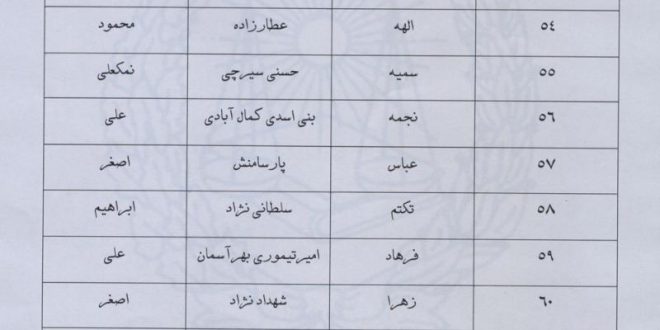 ٥٤ الهه عطارزاده محمود
٥٥ سمیه حسنی سیرچی نمکعلی
٥٦ نجمه بنی اسدی کمال آبادی علی
٥٧ عباس پارسامنش اصغر
٥٨ تکتم سلطانی نژاد ابراهیم
٥٩ فرهاد امیرتیموری بهرآسمان علی
٦٠ زهرا شهداد نژاد اصغر